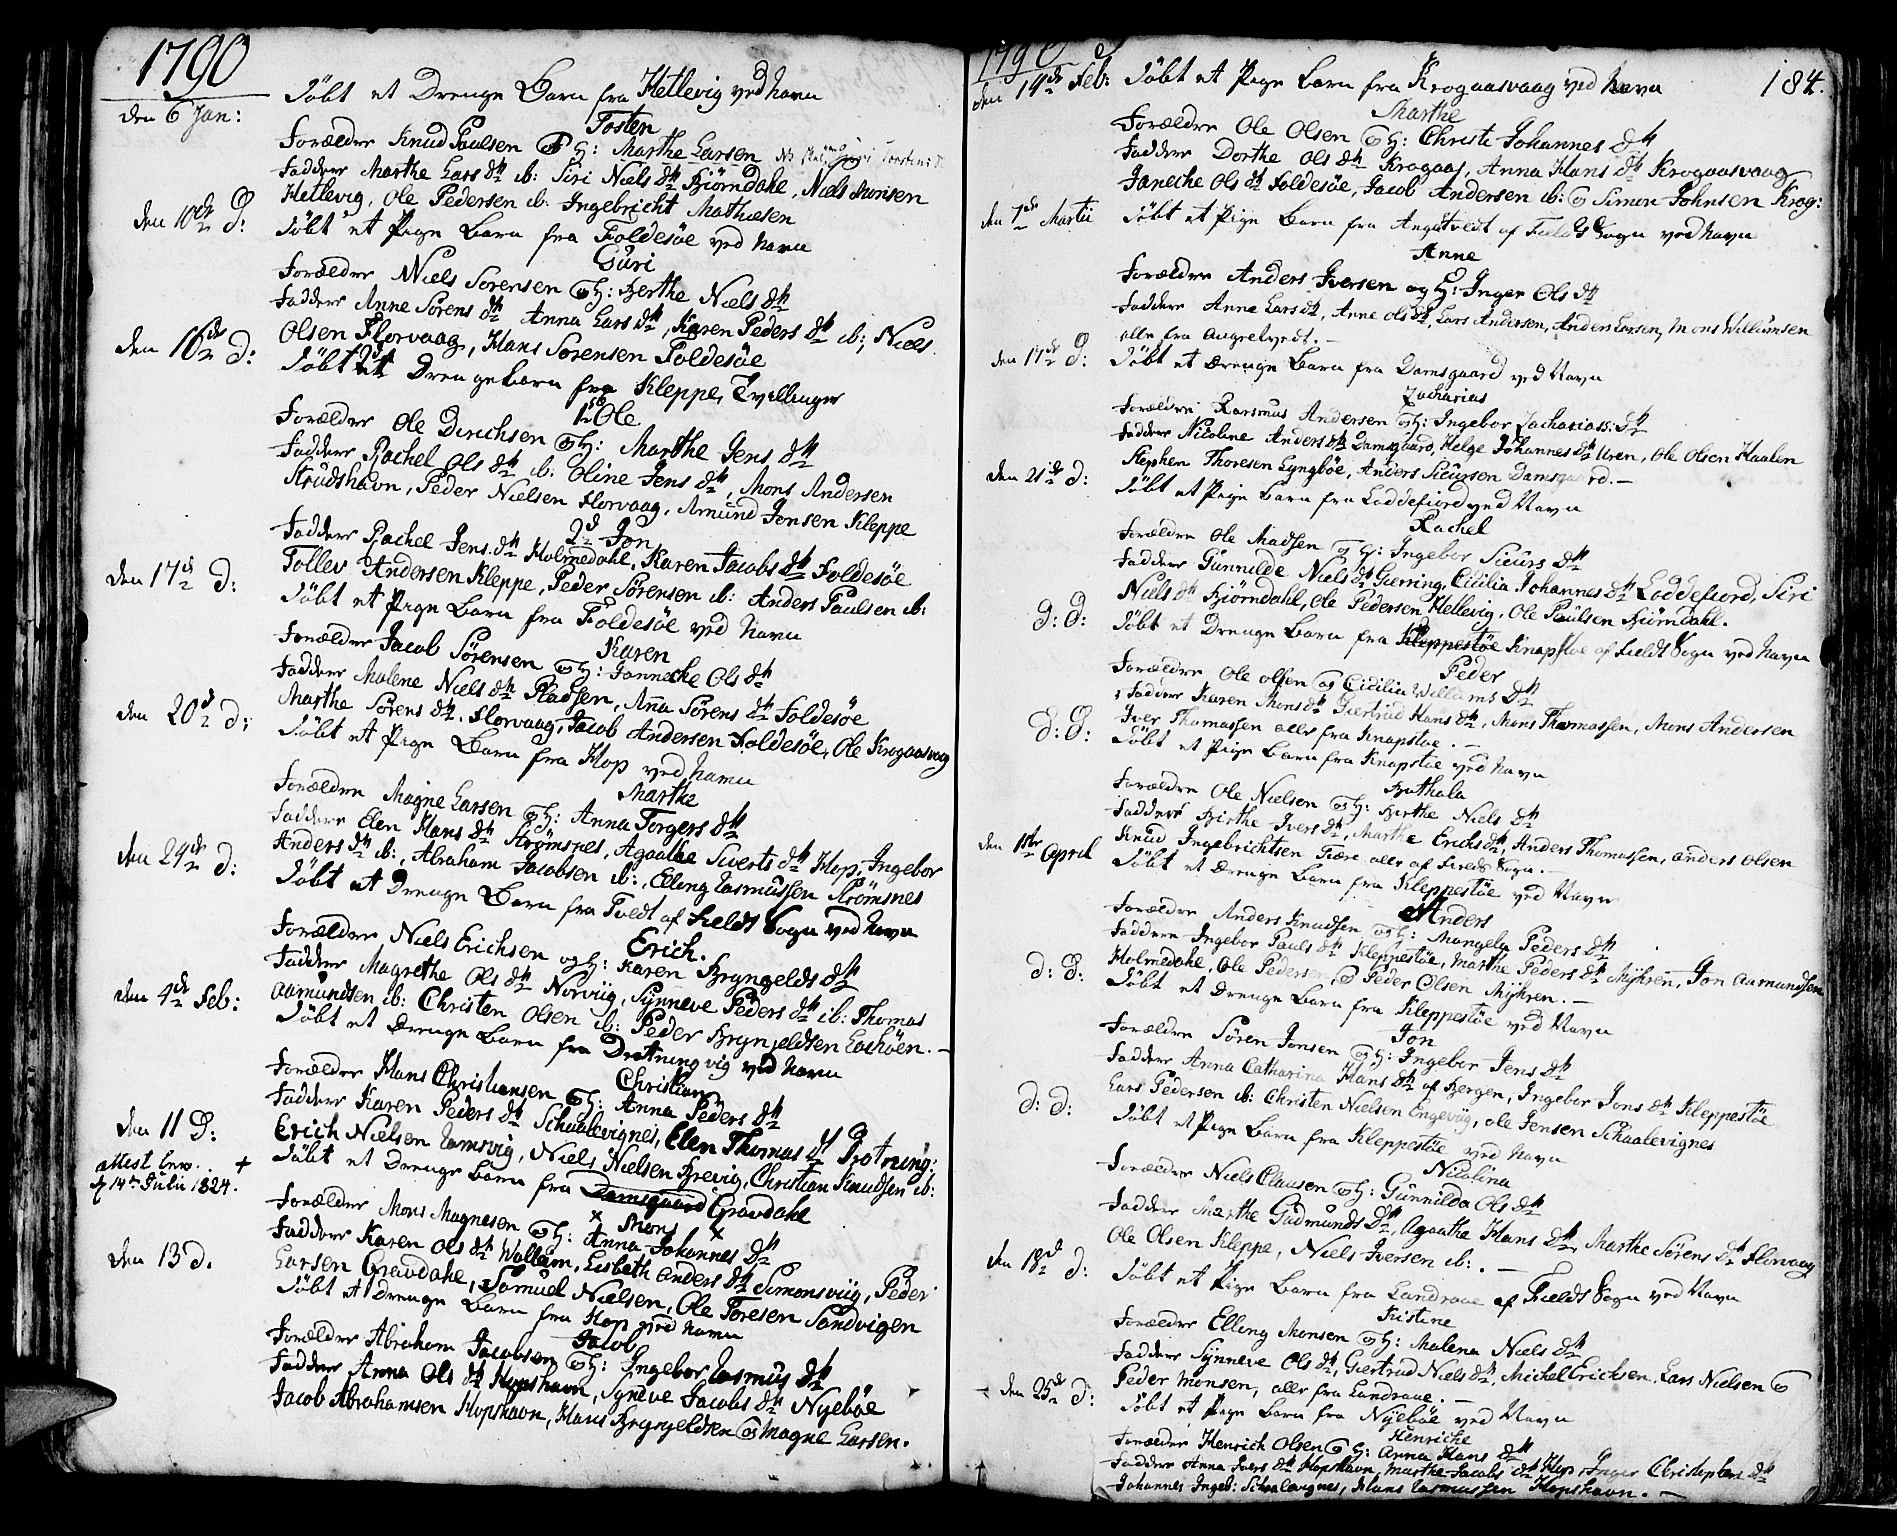 1790
den 6 Jan: Döbt et Drenge Barn fra Hellevig ved Navn
Tosten
Forældre Knud Paulsen og H: Marthe Larsen
Faddere Marthe Lars dtr ib: Siri Niels dtr Biörndahl, Niels Monsen
Hellevig, Ole Pedersen ib: Ingebricht Mathiesen
den 10de D: Döbt et Pige Barn fra Foldesöe ved Navn
Guri
Forældre Niels Sorensen og H: Berthe Niels dtr
Faddere Anne Sörens dtr Anna Lars dtr, Karen Peders dtr ib:, Niels
Olsen Florvaag, Hans Sorensen Foldesöe
den 16de D: Döbt 2de Drengebarn fra Kleppe, Tvillinger
1ste Ole
Forældre Ole Dirichsen og H: Marthe Jens dtr
Faddere Rachel Ols dtr ib: Oline Jens dtr, Mons Andersen
Strudshavn, Peder Nielsen Florvaag, Amund Jonsen Kleppe
2d Jon
Faddere Rachel Jens dtr Holmedahl, Karen Jacobs dtr Foldesöe
Tollev Andersen Kleppe, Peder Sörensen ib: Anders Paulsen ib:
den 17de D: Döbt et Pige Barn fra Foldesöe ved Navn
Karen
Forældre Jacob Sörensen og H: Janneche Ols dtr
Faddere Malene Niels dtr Pladsen, Anna Sörens dtr Foldesöe
Marthe Sörens dtr Florvaag, Jacob Andersen Foldesöe, Ole Krogaasvaag
den 20de D: Döbt et Pige Barn fra Hop ved Navn
Marthe
Forældre Magne Larsen og H: Anna Torgers dtr
Faddere Elen Hans dtr Strömsnes, Agaathe Siverts dtr Hop, Ingebor
Anders dtr ib:, Abraham Jacobsen ib:, Elling Rasmussen Strömsnes
den 24de D: Döbt et Drenge Barn fra Tvedt af Fields Sogn ved Navn
Erich.
Forældre Niels Erichsen og H: Karen Bryngelds dtr
Faddere Magrethe Ols dtr Norviig, Synneve Peders dtr ib: Thomas
Aamundsen ib: Christen Olsen ib: Peder Bryngeldsen Echöen. —
den 4de Feb: Döbt et Drenge Barn fra Drotningvig ved Navn
Christian
Forældre Hans Christiansen og H: Anna Peders dtr
Faddere Karen Peders dtr Schaalevignes, Elen Thomas dtr Drotning:
Erich Nielsen Ramsvig, Niels Nielsen Brevig, Christian Knudsen ib:
den 11 D: Döbt et Drenge Barn fra Damsgaard Gravdahl
attest bev. +
d 14de Julii 1824.
x Mons x
Forældre Mons Magnesen og H: Anna Johannes Dtr
Faddere Karen Ols dtr Wallem, Lisbeth Anders dtr Simonsviig, Peder
Larsen Gravdahl, Samuel Nielsen, Ole Toresen Sandvigen
den 13 D. Döbt et Drenge Barn fra Hop ved Navn
Jacob
Forældre Abraham Jacobsen og H: Ingebor Rasmus dtr
Faddere Anna Ols dtr Hopshavn, Syneve Jacobs dtr Nyeböe
Jacob Abrahamsen Hopshavn, Hans Bryngeldsen og Magne Larsen.
1790 184.
den 14de Feb: Döbt et Pige Barn fra Krogaasvaag ved Navn
Marthe
Forældre Ole Olsen og H: Christi Johannes dtr
Faddere Dorthe Ols dtr Krogaas, Anna Hans dtr Krogaasvaag
Janeche Ols dtr Foldesöe, Jacob Andersen ib: og Simon Johnsen Krog:
den 7de Martii Döbt et Pige Barn fra Angeltvedt af Fields Sogn ved Navn
Anne
Forældre Anders Iversen og H: Inger Ols dtr
Faddere Anne Lars dtr, Anne Ols dtr, Lars Andersen, Anders Larsen, Mons Willumsen
alle fra Angeltvedt. —
den 17de D: Döbt et Drenge Barn fra Damsgaard ved Navn
Zacharias
Forældre Rasmus Andersen og H: Ingebor Zachariass: Dtr
Faddere Nicoline Anders dtr Damsgaard, Helge Johannes dtr Uren, Ole Olsen Haalen
Stephen Thoresen Lyngböe, Anders Sieursen Damsgaard. —
den 21de D: Döbt et Pige Barn fra Loddefiord ved Navn
Rachel
Forældre Ole Madsen og H: Ingebor Sieurs Dtr
Faddere Gunnilde Niels dtr Gierring, Cicilia Johannes dtr Loddefiord, Siri
Niels dtr Biörndahl, Ole Pedersen Hellevig, Ole Paulsen Biörndahl.
D: D: Döbt et Drenge Barn fra Kleppestöe Knapstöe af Fields Sogn ved Navn
Peder
Forældre Ole Olsen og Cicilia Willums Dtr
Faddere Karen Mons dtr Giertrud Hans dtr, Mons Thomassen, Mons Andersen
Iver Thomassen alle fra Knapstöe. —
D: D: Döbt et Pige Barn fra Knapstöe ved Navn
Bathala
Forældre Ole Nielsen og H: Berthe Niels Dtr
Faddere Birthe Ivers dtr, Marthe Erichs dtr, Anders Thomassen, Anders Olsen
Knud Ingebrichtsen Tiære alle af Fields Sogn. —
den 1ste April Döbt et Drenge Barn fra Kleppestöe ved Navn
Anders
Forældre Anders Knudsen og H: Mangela Peders dtr
Faddere Ingebor Pauls dtr Kleppestöe, Marthe Peders dtr Myhren, Jon Aamundsen
Holmedahl, Ole Pedersen, og Peder Olsen Myhren. —
D: D: Döbt et Drenge Barn fra Kleppestöe ved Navn
Jon
Forældre Sören Jonsen og H: Ingebor Jens dtr
Faddere Anna Catharina Hans dtr af Bergen, Ingebor Jons dtr Kleppestöe
Lars Pedersen ib: Christen Nielsen Engeviig, Ole Jensen Schaalevignes
D: D: Döbt et Pige Barn fra Kleppestöe ved Navn
Nicolina
Forældre Niels Clausen og H: Gunnilda Ols dtr
Faddere Marthe Gudmunds Dtr, Agaathe Hans Dtr, Marthe Sörens dtr Florvaag
Ole Olsen Kleppe, Niels Iversen ib:. —
den 18de D: Döbt et Pige Barn fra Landraae af Fields Sogn ved Navn
Kistine
Forældre Elling Monsen og H: Malena Niels dtr
Faddere Synneve Ols dtr, Giertrud Niels dtr, Michel Erichsen, Lars Nielsen og
Peder Monsen, alle fra Landraae. —
den 25de D: Döbt et Pige Barn fra Nyeböe ved Navn
Henriche
Forældre Henrich Olsen og H: Anna Hans dtr
Faddere Anna Ivers dtr Hopshavn, Marthe Jacobs dtr Hop, Inger Christophers dtr
Johannes Ingeb: Schaalevignes, Hans Rasmussen Hopshavn. —